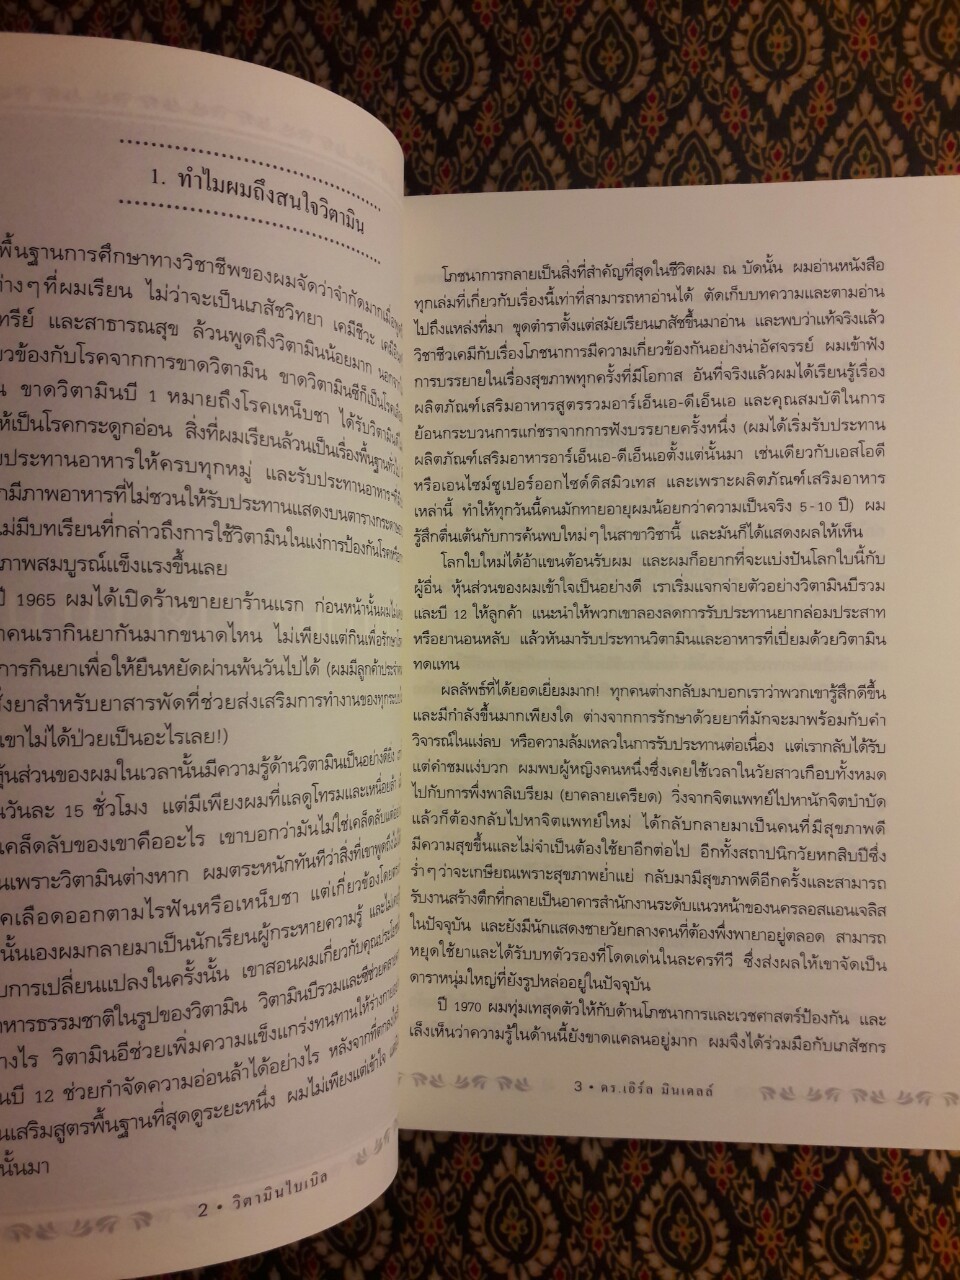 1. ทำไมผมถึงสนใจวิตามิน
พื้นฐานการศึกษาทางวิชาชีพของผมจัดว่าจำกัดมากเมื่อ
ต่างๆที่ผมเรียน ไม่ว่าจะเป็นเภสัชวิทยา เคมีชีวะ
ทรีย์ และสาธารณสุข ล้วนพูดถึงวิตามินน้อยมาก
วข้องกับโรคจากการขาดวิตามิน ขาดวิตามินซีก็เป็นโรค
น ขาดวิตามินบี 1 หมายถึงโรคเหน็บชา ได้รับวิตามิน
ห้เป็นโรคกระดูกอ่อน สิ่งที่ผมเรียนล้วนเป็นเรื่องพื้นฐาน
ประทานอาหารให้ครบทุกหมู่ และรับประทานอาหาร
มีภาพอาหารที่ไม่ชวนให้รับประทานแสดงบนตาราง
ม่มีบทเรียนที่กล่าวถึงการใช้วิตามินในแง่การป้องกันโรค
ภาพสมบูรณ์แข็งแรงขึ้นเลย
ปี 1965 ผมได้เปิดร้านขายยาร้านแรก ก่อนหน้านั้นผม
คนเรากินยากันมากขนาดไหน ไม่เพียงแต่กินเพื่อรักษา
การกินยาเพื่อให้ยืนหยัดผ่านพ้นวันไปได้ (ผมมีลูกค้าประจำ
สั่งยาสำหรับยาสารพัดที่ช่วยส่งเสริมการทำงานของทุกระบบ
เขาไม่ได้ป่วยเป็นอะไรเลย!)
หุ้นส่วนของผมในเวลานั้นมีความรู้ด้านวิตามินเป็นอย่างดียิ่ง
นวันละ 15 ชั่วโมง แต่มีเพียงผมที่แลดูโทรมและเหนื่อยล้า
เคล็ดลับของเขาคืออะไร เขาบอกว่ามันไม่ใช่เคล็ดลับ
นเพราะวิตามินต่างหาก ผมตระหนักทันทีว่าสิ่งที่เขาพูดถึง
คเลือดออกตามไรฟันหรือเหน็บชา แต่เกี่ยวข้องโดยตรง
นั้นเองผมกลายมาเป็นนักเรียนผู้กระหายความรู้
บการเปลี่ยนแปลงในครั้งนั้น เขาสอนผมเกี่ยวกับคุณประโยชน์
าหารธรรมชาติในรูปของวิตามิน วิตามินบีรวมและซีช่วย
างไร วิตามินอีช่วยเพิ่มความแข็งแกร่งทนทานให้ร่างกาย
นบี 12 ช่วยกำจัดความอ่อนล้าได้อย่างไร หลังจาก
นเสริมสูตรพื้นฐานที่สุดดูระยะหนึ่ง ผมไม่เพียงแต่เข้าใจ
นั้นมา
2 • วิตามินไบเบิล
โภชนาการกลายเป็นสิ่งที่สำคัญที่สุดในชีวิตผม ณ บัดนั้น ผมอ่านหนังสือ
ทุกเล่มที่เกี่ยวกับเรื่องนี้เท่าที่สามารถหาอ่านได้ ตัดเก็บบทความและตามอ่าน
ไปถึงแหล่งที่มา ขุดตำราตั้งแต่สมัยเรียนเภสัชขึ้นมาอ่าน และพบว่าแท้จริงแล้ว
วิชาชีวเคมีกับเรื่องโภชนาการมีความเกี่ยวข้องกันอย่างน่าอัศจรรย์ ผมเข้าฟัง
การบรรยายในเรื่องสุขภาพทุกครั้งที่มีโอกาส อันที่จริงแล้วผมได้เรียนรู้เรื่อง
ผลิตภัณฑ์เสริมอาหารสูตรรวมอาร์เอ็นเอ-ดีเอ็นเอ และคุณสมบัติในการ
ย้อนกระบวนการแก่ชราจากการฟังบรรยายครั้งหนึ่ง (ผมได้เริ่มรับประทาน
ผลิตภัณฑ์เสริมอาหารอาร์เอ็นเอ-ดีเอ็นเอตั้งแต่นั้นมา เช่นเดียวกับเอสโอดี
หรือเอนไซม์ซูเปอร์ออกไซด์ดิสมิวเทส และเพราะผลิตภัณฑ์เสริมอาหาร
เหล่านี้ ทำให้ทุกวันนี้คนมักทายอายุผมน้อยกว่าความเป็นจริง 5-10 ปี) ผม
รู้สึกตื่นเต้นกับการค้นพบใหม่ๆในสาขาวิชานี้ และมันก็ได้แสดงผลให้เห็น
โลกใบใหม่ได้อ้าแขนต้อนรับผม และผมก็อยากที่จะแบ่งปันโลกใบนี้กับ
ผู้อื่น หุ้นส่วนของผมเข้าใจเป็นอย่างดี เราเริ่มแจกจ่ายตัวอย่างวิตามินบีรวม
และบี 12 ให้ลูกค้า แนะนำให้พวกเขาลองลดการรับประทานยากล่อมประสาท
หรือยานอนหลับ แล้วหันมารับประทานวิตามินและอาหารที่เปี่ยมด้วยวิตามิน
ทดแทน
ผลลัพธ์ที่ได้ยอดเยี่ยมมาก! ทุกคนต่างกลับมาบอกเราว่าพวกเขารู้สึกดีขึ้น
และมีกำลังขึ้นมากเพียงใด ต่างจากการรักษาด้วยยาที่มักจะมาพร้อมกับคำ
วิจารณ์ในแง่ลบ หรือความล้มเหลวในการรับประทานต่อเนื่อง แต่เรากลับได้รับ
แต่คำชมแง่บวก ผมพบผู้หญิงคนหนึ่งซึ่งเคยใช้เวลาในวัยสาวเกือบทั้งหมด
ไปกับการพึ่งพาลิเบรียม (ยาคลายเครียด) วิ่งจากจิตแพทย์ไปหานักจิตบำบัด
แล้วก็ต้องกลับไปหาจิตแพทย์ใหม่ ได้กลับกลายมาเป็นคนที่มีสุขภาพดี
มีความสุขขึ้นและไม่จำเป็นต้องใช้ยาอีกต่อไป อีกทั้งสถาปนิกวัยหกสิบปีซึ่ง
ร่ำๆว่าจะเกษียณเพราะสุขภาพย่ำแย่ กลับมามีสุขภาพดีอีกครั้งและสามารถ
รับงานสร้างตึกที่กลายเป็นอาคารสำนักงานระดับแนวหน้าของนครลอสแอนเจลิส
ในปัจจุบัน และยังมีนักแสดงชายวัยกลางคนที่ต้องพึ่งพายาอยู่ตลอด สามารถ
หยุดใช้ยาและได้รับบทตัวรองที่โดดเด่นในละครทีวี ซึ่งส่งผลให้เขาจัดเป็น
ดาราหนุ่มใหญ่ที่ยังรูปหล่ออยู่ในปัจจุบัน
ปี 1970 ผมทุ่มเทสุดตัวให้กับด้านโภชนาการและเวชศาสตร์ป้องกัน และ
เล็งเห็นว่าความรู้ในด้านนี้ยังขาดแคลนอยู่มาก ผมจึงได้ร่วมมือกับเภสัชกร
3 • ดร.เอิร์ล มินเดลล์